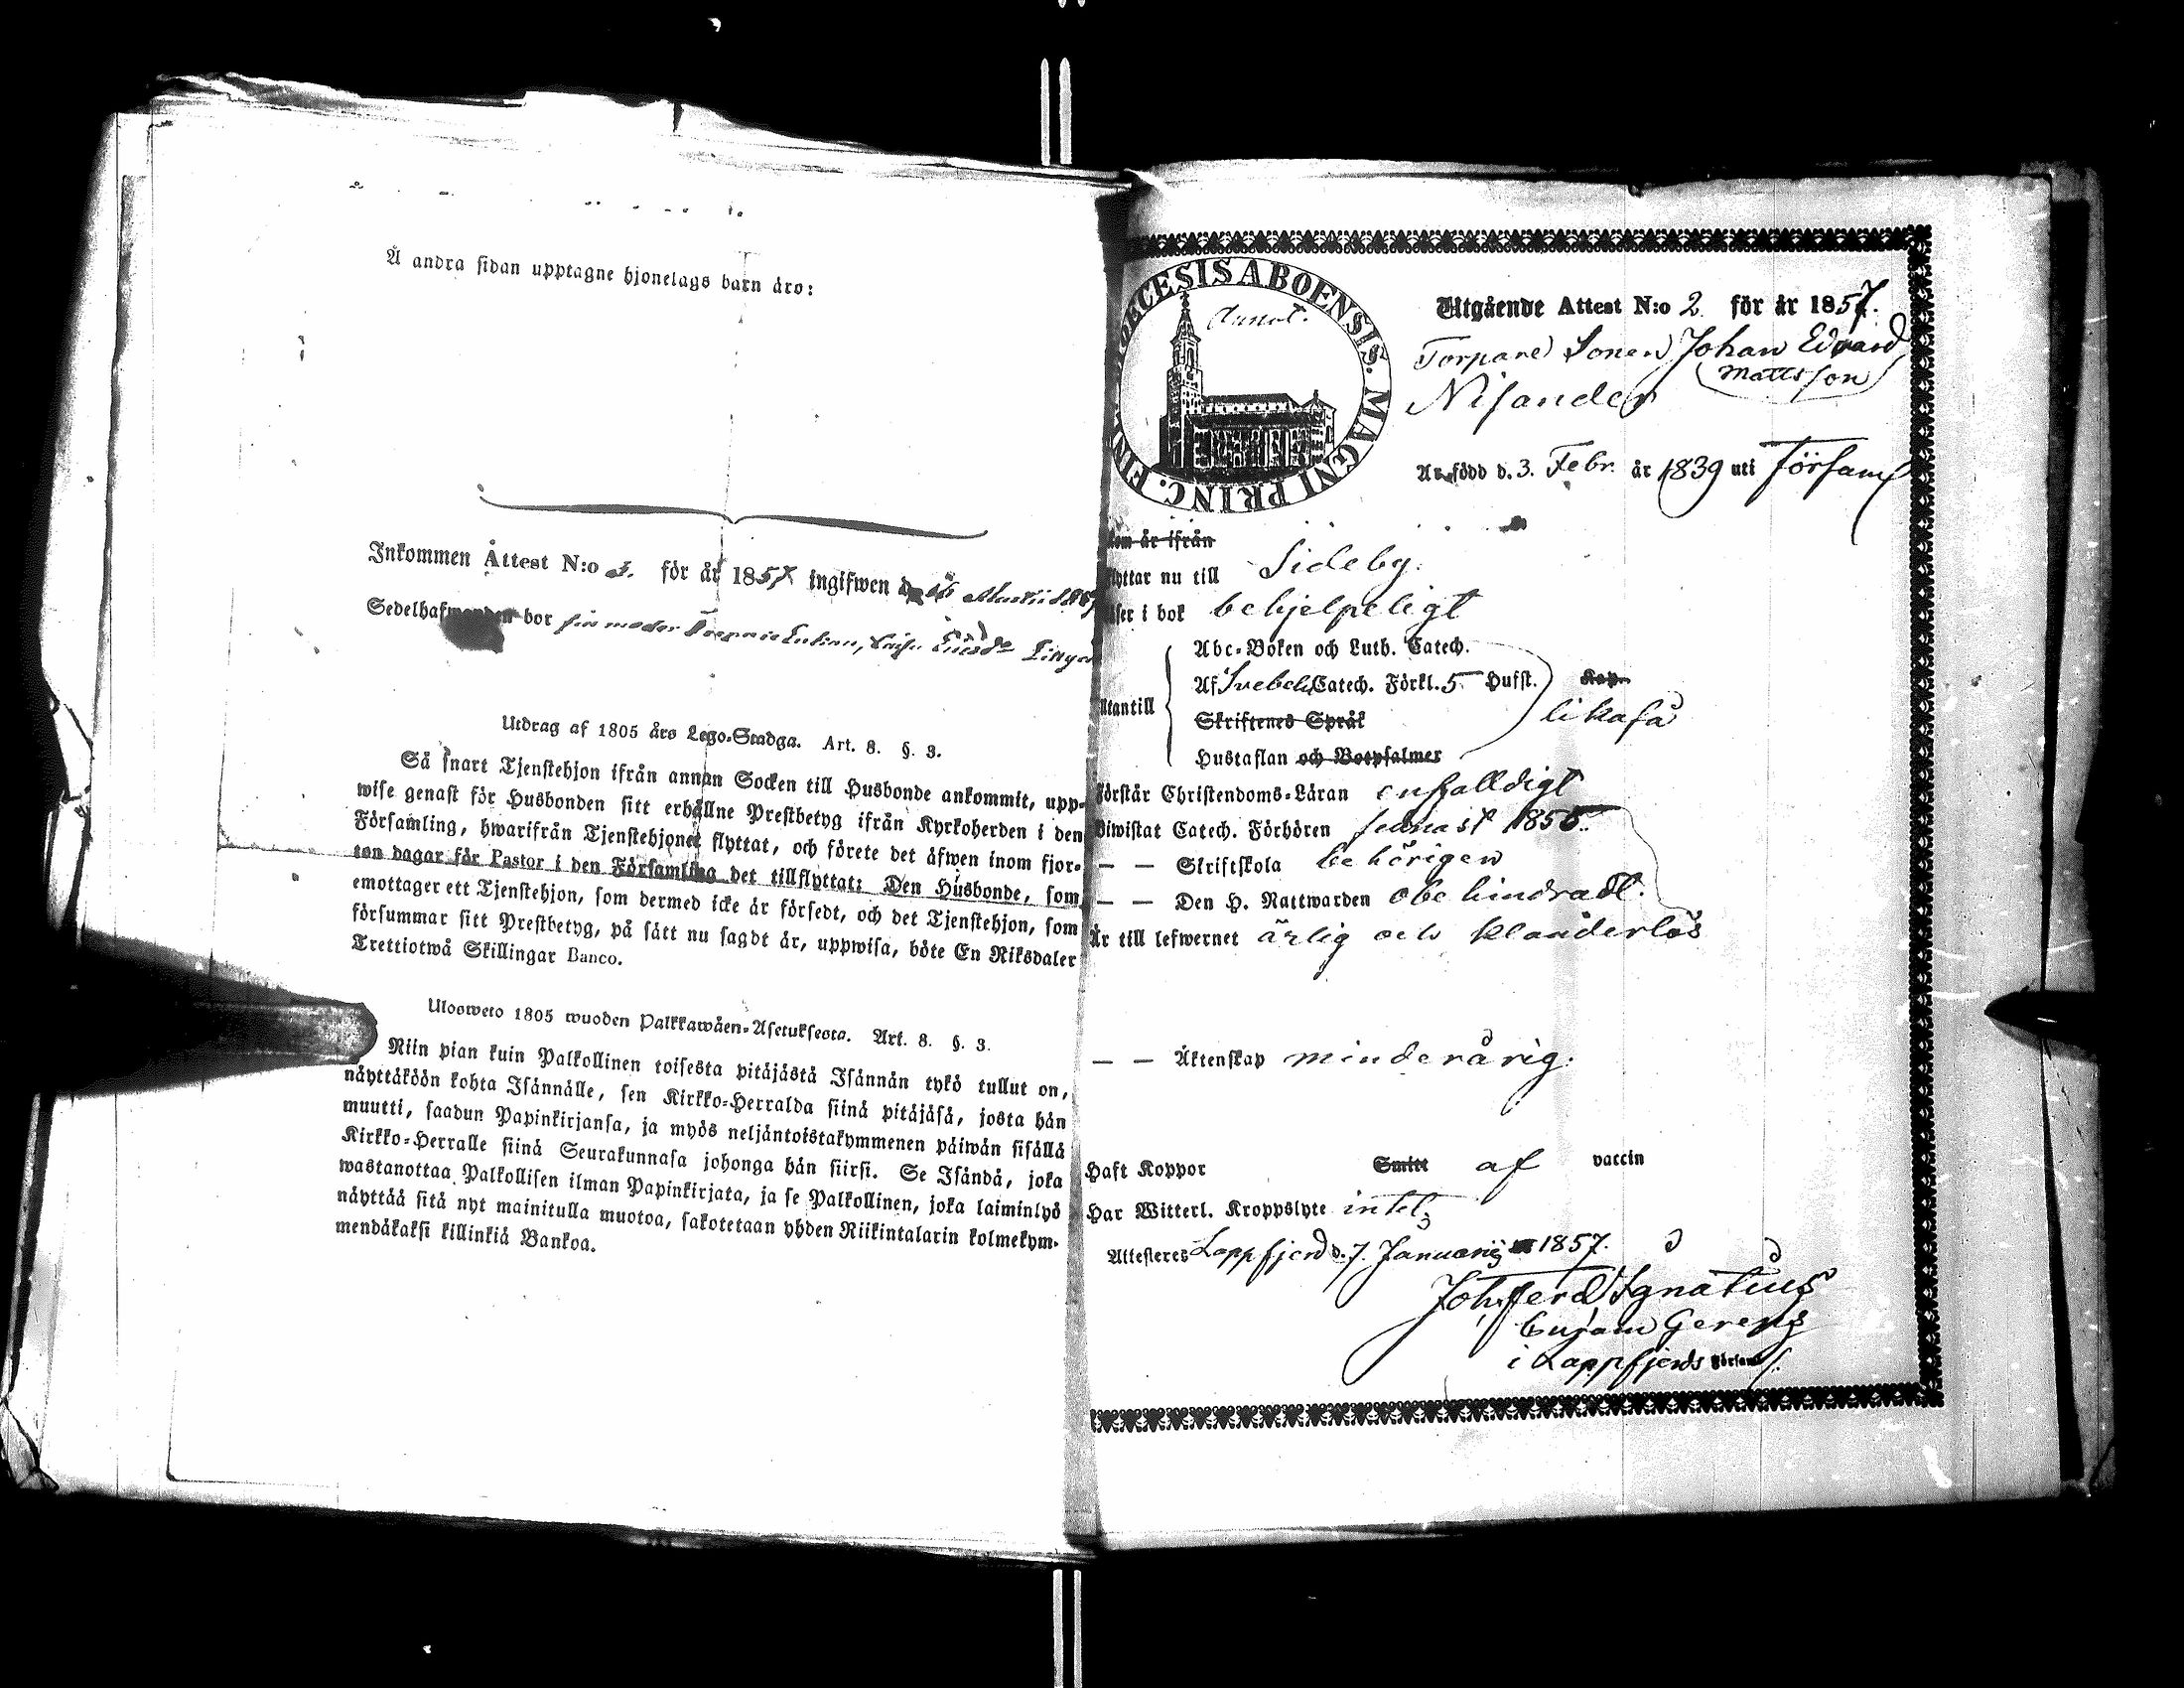 Å andra sidan upptagne hjonelags barn äro:
Inkommen Attest N:o 3. för år 1857 ingifwen d. Martii 1857
Sedelhafwanden bor sin moder
Utdrag af 1805 års Lego-Stadga. Art. 8. §. 3.
Så snart Tjenstehjon ifrån annan Socken till Husbonde ankommit, upp-
wise genast för Husbonden sitt erhållne Prestbetyg ifrån Kyrkoherden i den
Församling, hwarifrån Tjenstehjonet flyttat, och förete det äfwen inom fjor-
ton dagar för Pastor i den Församling det tillflyttat: Den Husbonde, som
emottager ett Tjenstehjon, som dermed icke är försedt, och det Tjenstehjon, som
försummar sitt Prestbetyg, på sätt nu sagdt är, uppwisa, böte En Riksdaler
Trettiotwå Skillingar Banco.
Ulosweto 1805 wuoden Palkkawäen-Asetuksesta. Art. 8. §. 3.
Niin pian kuin Palkollinen toisesta pitäjästä Isännän tykö tullut on,
näyttäköön kohta Isännälle, sen Kirkko-Herralda siinä pitäjäsä, josta hän
muutti, saadun Papinkirjansa, ja myös neljäntoistakymmenen päiwän sisällä
Kirkko-Herralle siinä Seurakunnasa johonga hän siirsi. Se Isändä, joka
wastanottaa Palkollisen ilman Papinkirjata, ja se Palkollinen, joka laiminlyö
näyttää sitä nyt mainitulla muotoa, sakotetaan yhden Riikintalarin kolmekym-
mendäkaksi killinkiä Bankoa.
DIOECESIS ABOENSIS. MAGNI PRINC. FIN
Annot.
Utgående Attest N:o 2. för år 1857.
Torpare Sonen Johan Edvard
Mattsson
Nisander
Är född d. 3. Febr. år 1839 uti Församl
som är ifrån
flyttar nu till Sideby.
Läser i bok behjelpeligt
Abc-Boken och Luth. Catech.
Af Svebel. Catech. Förkl. 5 Hufst. Kap.
Utantill
Skriftenes Språk likaså
Hustaflan och Botpsalmer
Förstår Christendoms-Läran enfalldigt
Biwistat Catech. Förhören senast 1856.
— — Skriftskola behörigen
— — Den H. Nattwarden obehindradt.
Är till lefwernet ärlig och klanderlös
— — Äktenskap minderårig.
Haft Koppor Smitt af vaccin
Har Witterl. Kroppslyte intet
Attesteres Lappfjerd d. 7. Januarii 1857.
Joh. Ferd Ignatius
i Lappfjerds Församl.